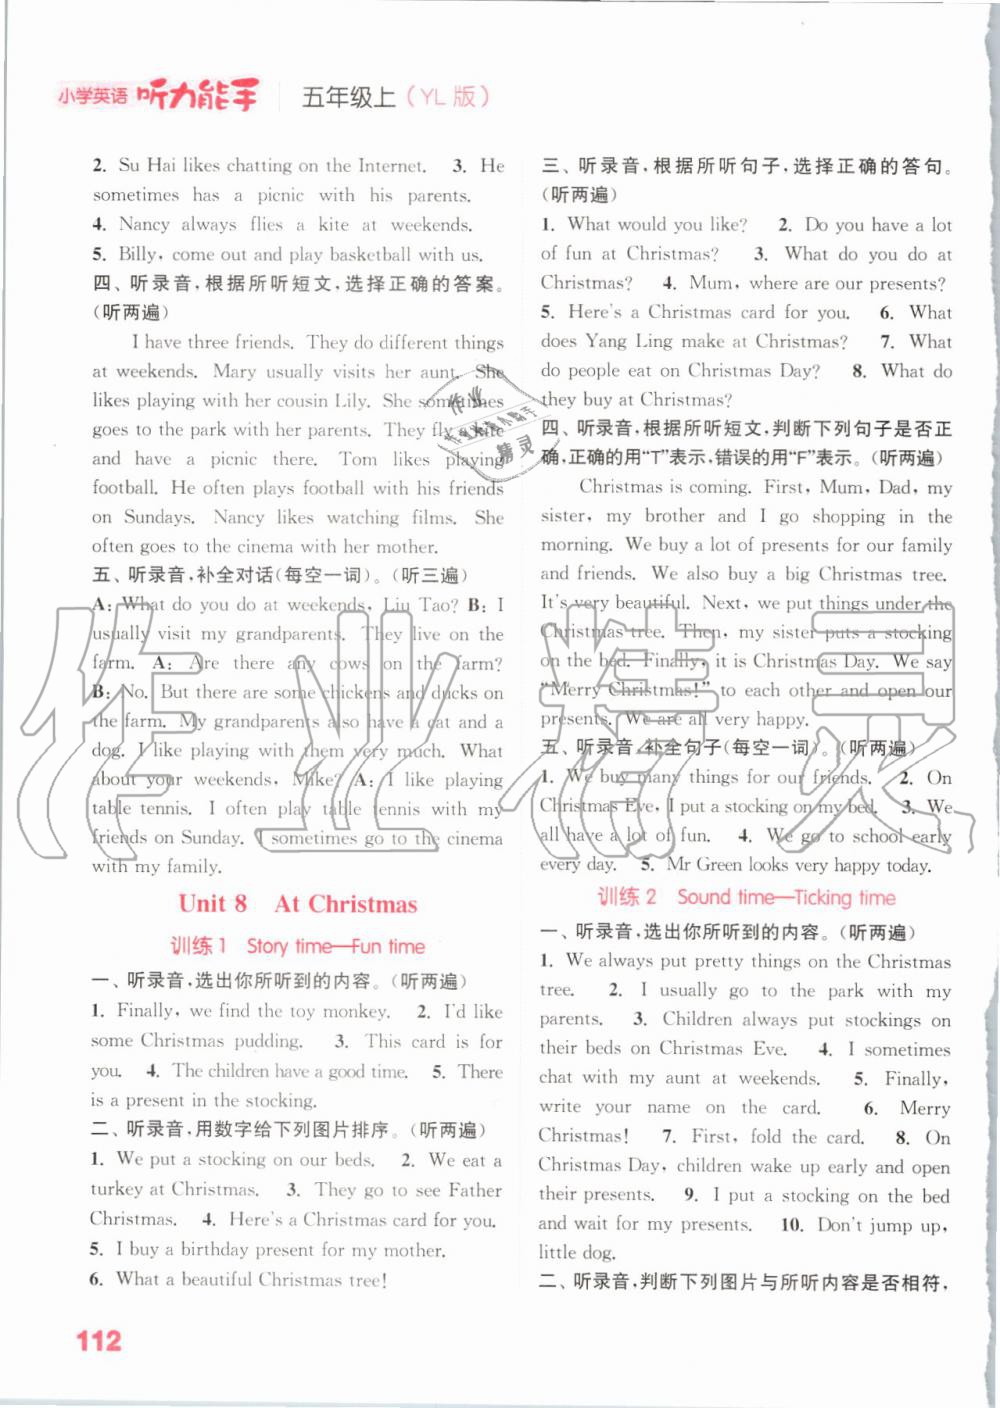 小学英语 听力能手 五年级上（YL 版）
2. Su Hai likes chatting on the Internet. 3. He
sometimes has a picnic with his parents.
4. Nancy always flies a kite at weekends.
5. Billy, come out and play basketball with us.
四、听录音,根据所听短文,选择正确的答案。
(听两遍)
I have three friends. They do different things
at weekends. Mary usually visits her aunt. She
likes playing with her cousin Lily. She sometimes
goes to the park with her parents. They fly a kite
and have a picnic there. Tom likes playing
football. He often plays football with his friends
on Sundays. Nancy likes watching films. She
often goes to the cinema with her mother.
五、听录音,补全对话(每空一词)。(听三遍)
A: What do you do at weekends, Liu Tao? B: I
usually visit my grandparents. They live on the
farm. A: Are there any cows on the farm?
B: No. But there are some chickens and ducks on
the farm. My grandparents also have a cat and a
dog. I like playing with them very much. What
about your weekends, Mike? A: I like playing
table tennis. I often play table tennis with my
friends on Sunday. I sometimes go to the cinema
with my family.
Unit 8 At Christmas
训练1 Story time—Fun time
一、听录音,选出你所听到的内容。(听两遍)
1. Finally, we find the toy monkey. 2. I'd like
some Christmas pudding. 3. This card is for
you. 4. The children have a good time. 5. There
is a present in the stocking.
二、听录音,用数字给下列图片排序。(听两遍)
1. We put a stocking on our beds. 2. We eat a
turkey at Christmas. 3. They go to see Father
Christmas. 4. Here's a Christmas card for you.
5. I buy a birthday present for my mother.
6. What a beautiful Christmas tree!
三、听录音,根据所听句子,选择正确的答句。
(听两遍)
1. What would you like? 2. Do you have a lot
of fun at Christmas? 3. What do you do at
Christmas? 4. Mum, where are our presents?
5. Here's a Christmas card for you. 6. What
does Yang Ling make at Christmas? 7. What
do people eat on Christmas Day? 8. What do
they buy at Christmas?
四、听录音,根据所听短文,判断下列句子是否正
确,正确的用“T”表示,错误的用“F”表示。(听两遍)
Christmas is coming. First, Mum, Dad, my
sister, my brother and I go shopping in the
morning. We buy a lot of presents for our family
and friends. We also buy a big Christmas tree.
It's very beautiful. Next, we put things under the
Christmas tree. Then, my sister puts a stocking
on the bed. Finally, it is Christmas Day. We say
“Merry Christmas!” to each other and open our
presents. We are all very happy.
五、听录音,补全句子(每空一词)。(听两遍)
1. We buy many things for our friends. 2. On
Christmas Eve, I put a stocking on my bed. 3. We
all have a lot of fun. 4. We go to school early
every day. 5. Mr Green looks very happy today.
训练2 Sound time—Ticking time
一、听录音,选出你所听到的内容。(听两遍)
1. We always put pretty things on the Christmas
tree. 2. I usually go to the park with my
parents. 3. Children always put stockings on
their beds on Christmas Eve. 4. I sometimes
chat with my aunt at weekends. 5. Finally,
write your name on the card. 6. Merry
Christmas! 7. First, fold the card. 8. On
Christmas Day, children wake up early and open
their presents. 9. I put a stocking on the bed
and wait for my presents. 10. Don't jump up,
little dog.
二、听录音,判断下列图片与所听内容是否相符,
112
作业精灵